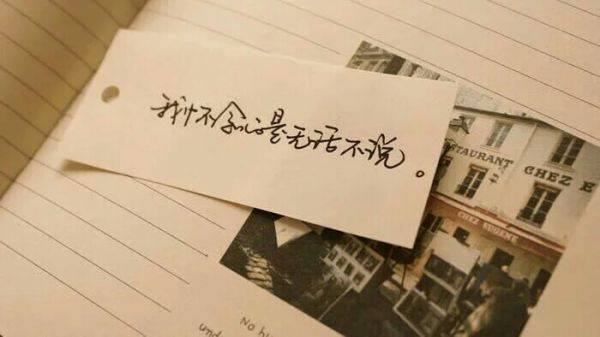 我怀念的是无话不说。
STAURANT
CHEZ E
CHEZ EUGENE
No
und